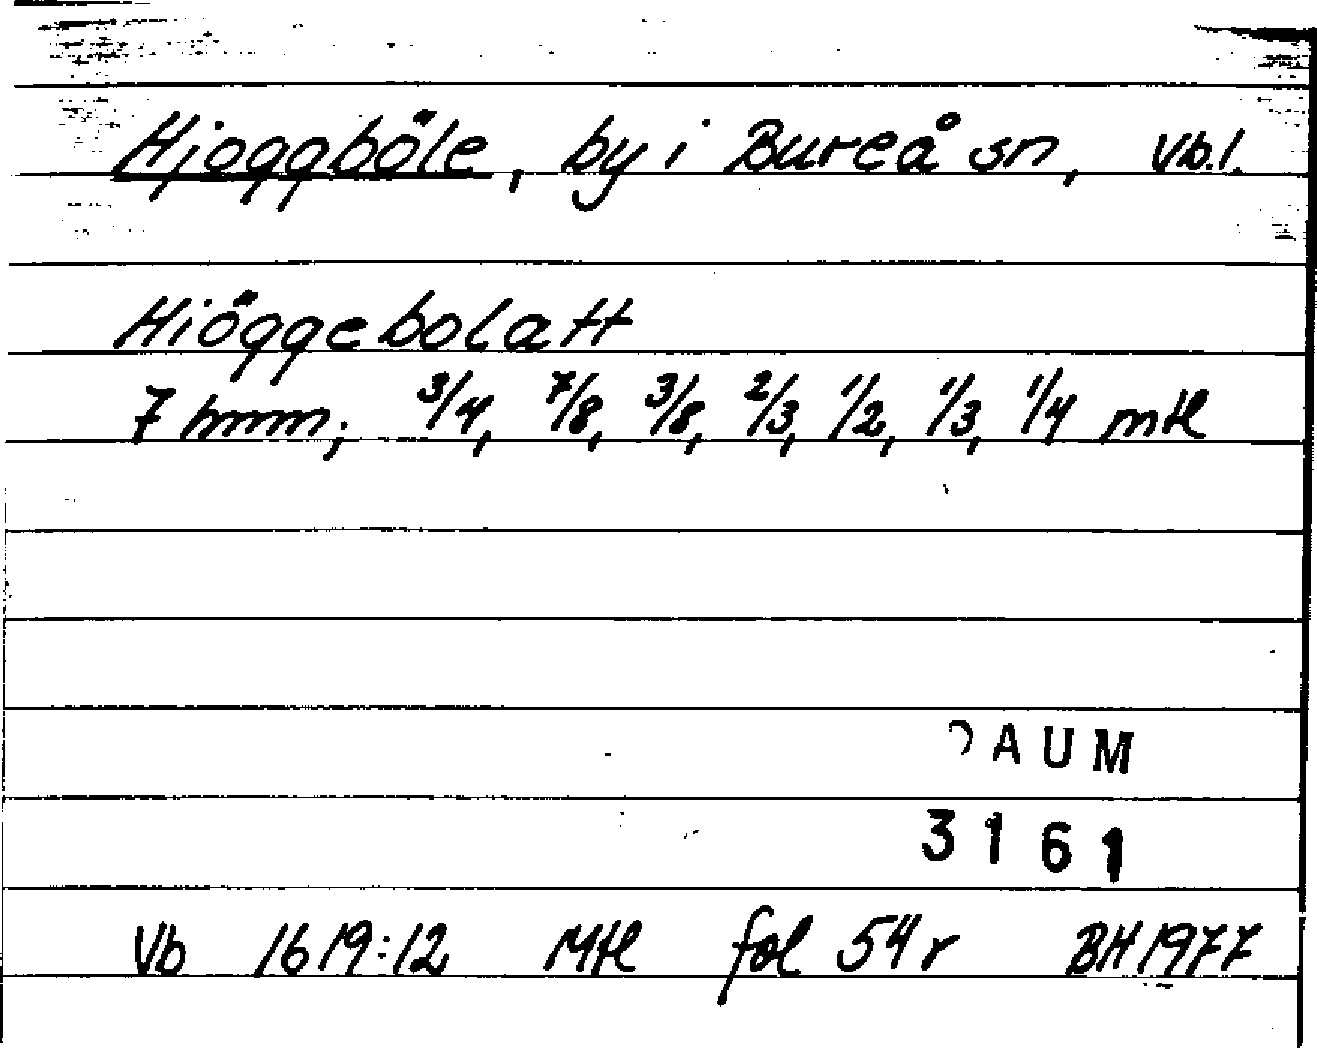 Hjoggböle, by i Bureå sn, Vb.l.
Hiöggebolatt
7 hmm; 3/4, 7/8, 3/8, 2/3, 1/2, 1/3, 1/4 mtl
DAUM
3161
Vb 1619:12 Mtl fol 54r BH 1977